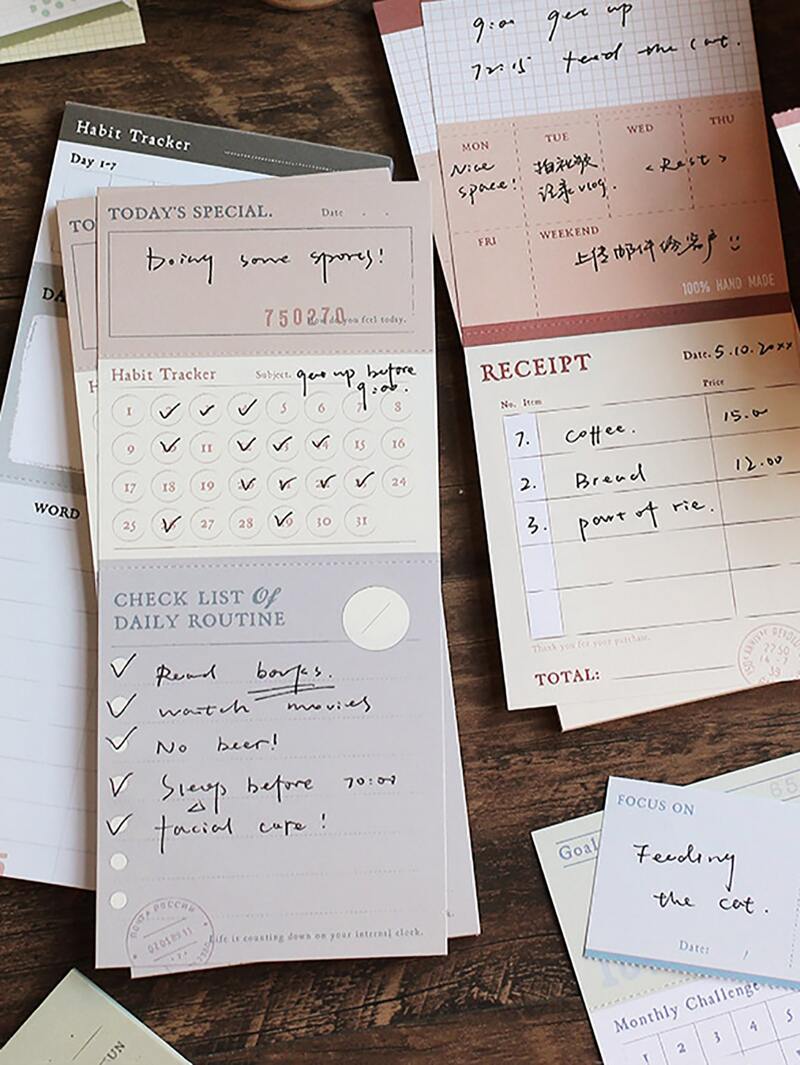 Habit Tracker
Day 1-7
TO
DA
WORD
TODAY'S SPECIAL.
Date . .
Doing some spores!
750270
How do you feel today.
Habit Tracker
Subject. get up before
9:00.
1 ✓ ✓ ✓ 5 6 7 8
9 ✓ 11 ✓ ✓ ✓ 15 16
17 18 19 ✓ ✓ ✓ ✓ 24
25 ✓ 27 28 ✓ 30 31
CHECK LIST Of
DAILY ROUTINE
✓ Read
✓ watch movies
✓ No beer!
✓ Sleep before 10:00
✓ facial care!
ПОЧТА РОССИИ
Life is counting down on your internal clock.
9:00 get up
12:15 feed the cat.
MON
TUE
WED
THU
Nice
space!
记录vlog.
<Rest>
FRI
WEEKEND
上传邮件给客户
100% HAND MADE
RECEIPT
Date. 5.10.20xx
No. Item
Price
1. Coffee. 15.00
2. Bread 12.00
3.
Thank you for your purchase.
TOTAL:
FOCUS ON
Feeding
the cat.
Date: /
Goal
65
Monthly Challenge
1 2 3 4 5
UN